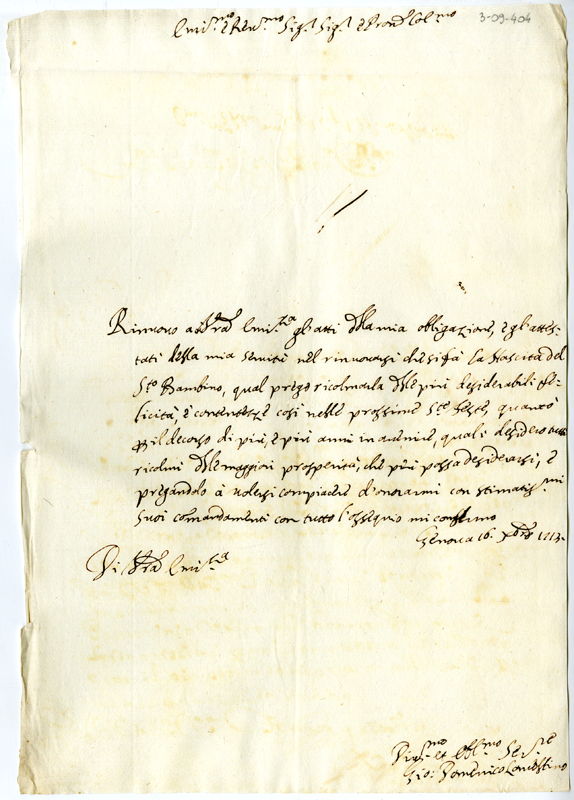 3-09-404
Emi.mo e Rev.mo Sig.r Sig.r e Pron Col.mo
Rinnovo a Vra Emi.za gl'atti della mia obligazione, e gl'attes-
tati della mia servitù nel rinnovarsi che si fà la Nascita del
S.to Bambino, qual prego ricolmarla delle più desiderabili fe-
licità, e contentezze così nelle prossime S.te Feste, quanto
p il decorso di più, e più anni in avenire, quali desidero
ricolmi delle maggiori prosperità, che più possa desiderarsi, e
pregandolo à volersi compiacere d'onorarmi con stimatiss.mi
suoi comandamenti con tutto l'ossequio mi confermo
Genova 16. Xbre 1713.
Di Vra Emi.za
Div.mo et Obl.mo Se.re
Gio: Domenico